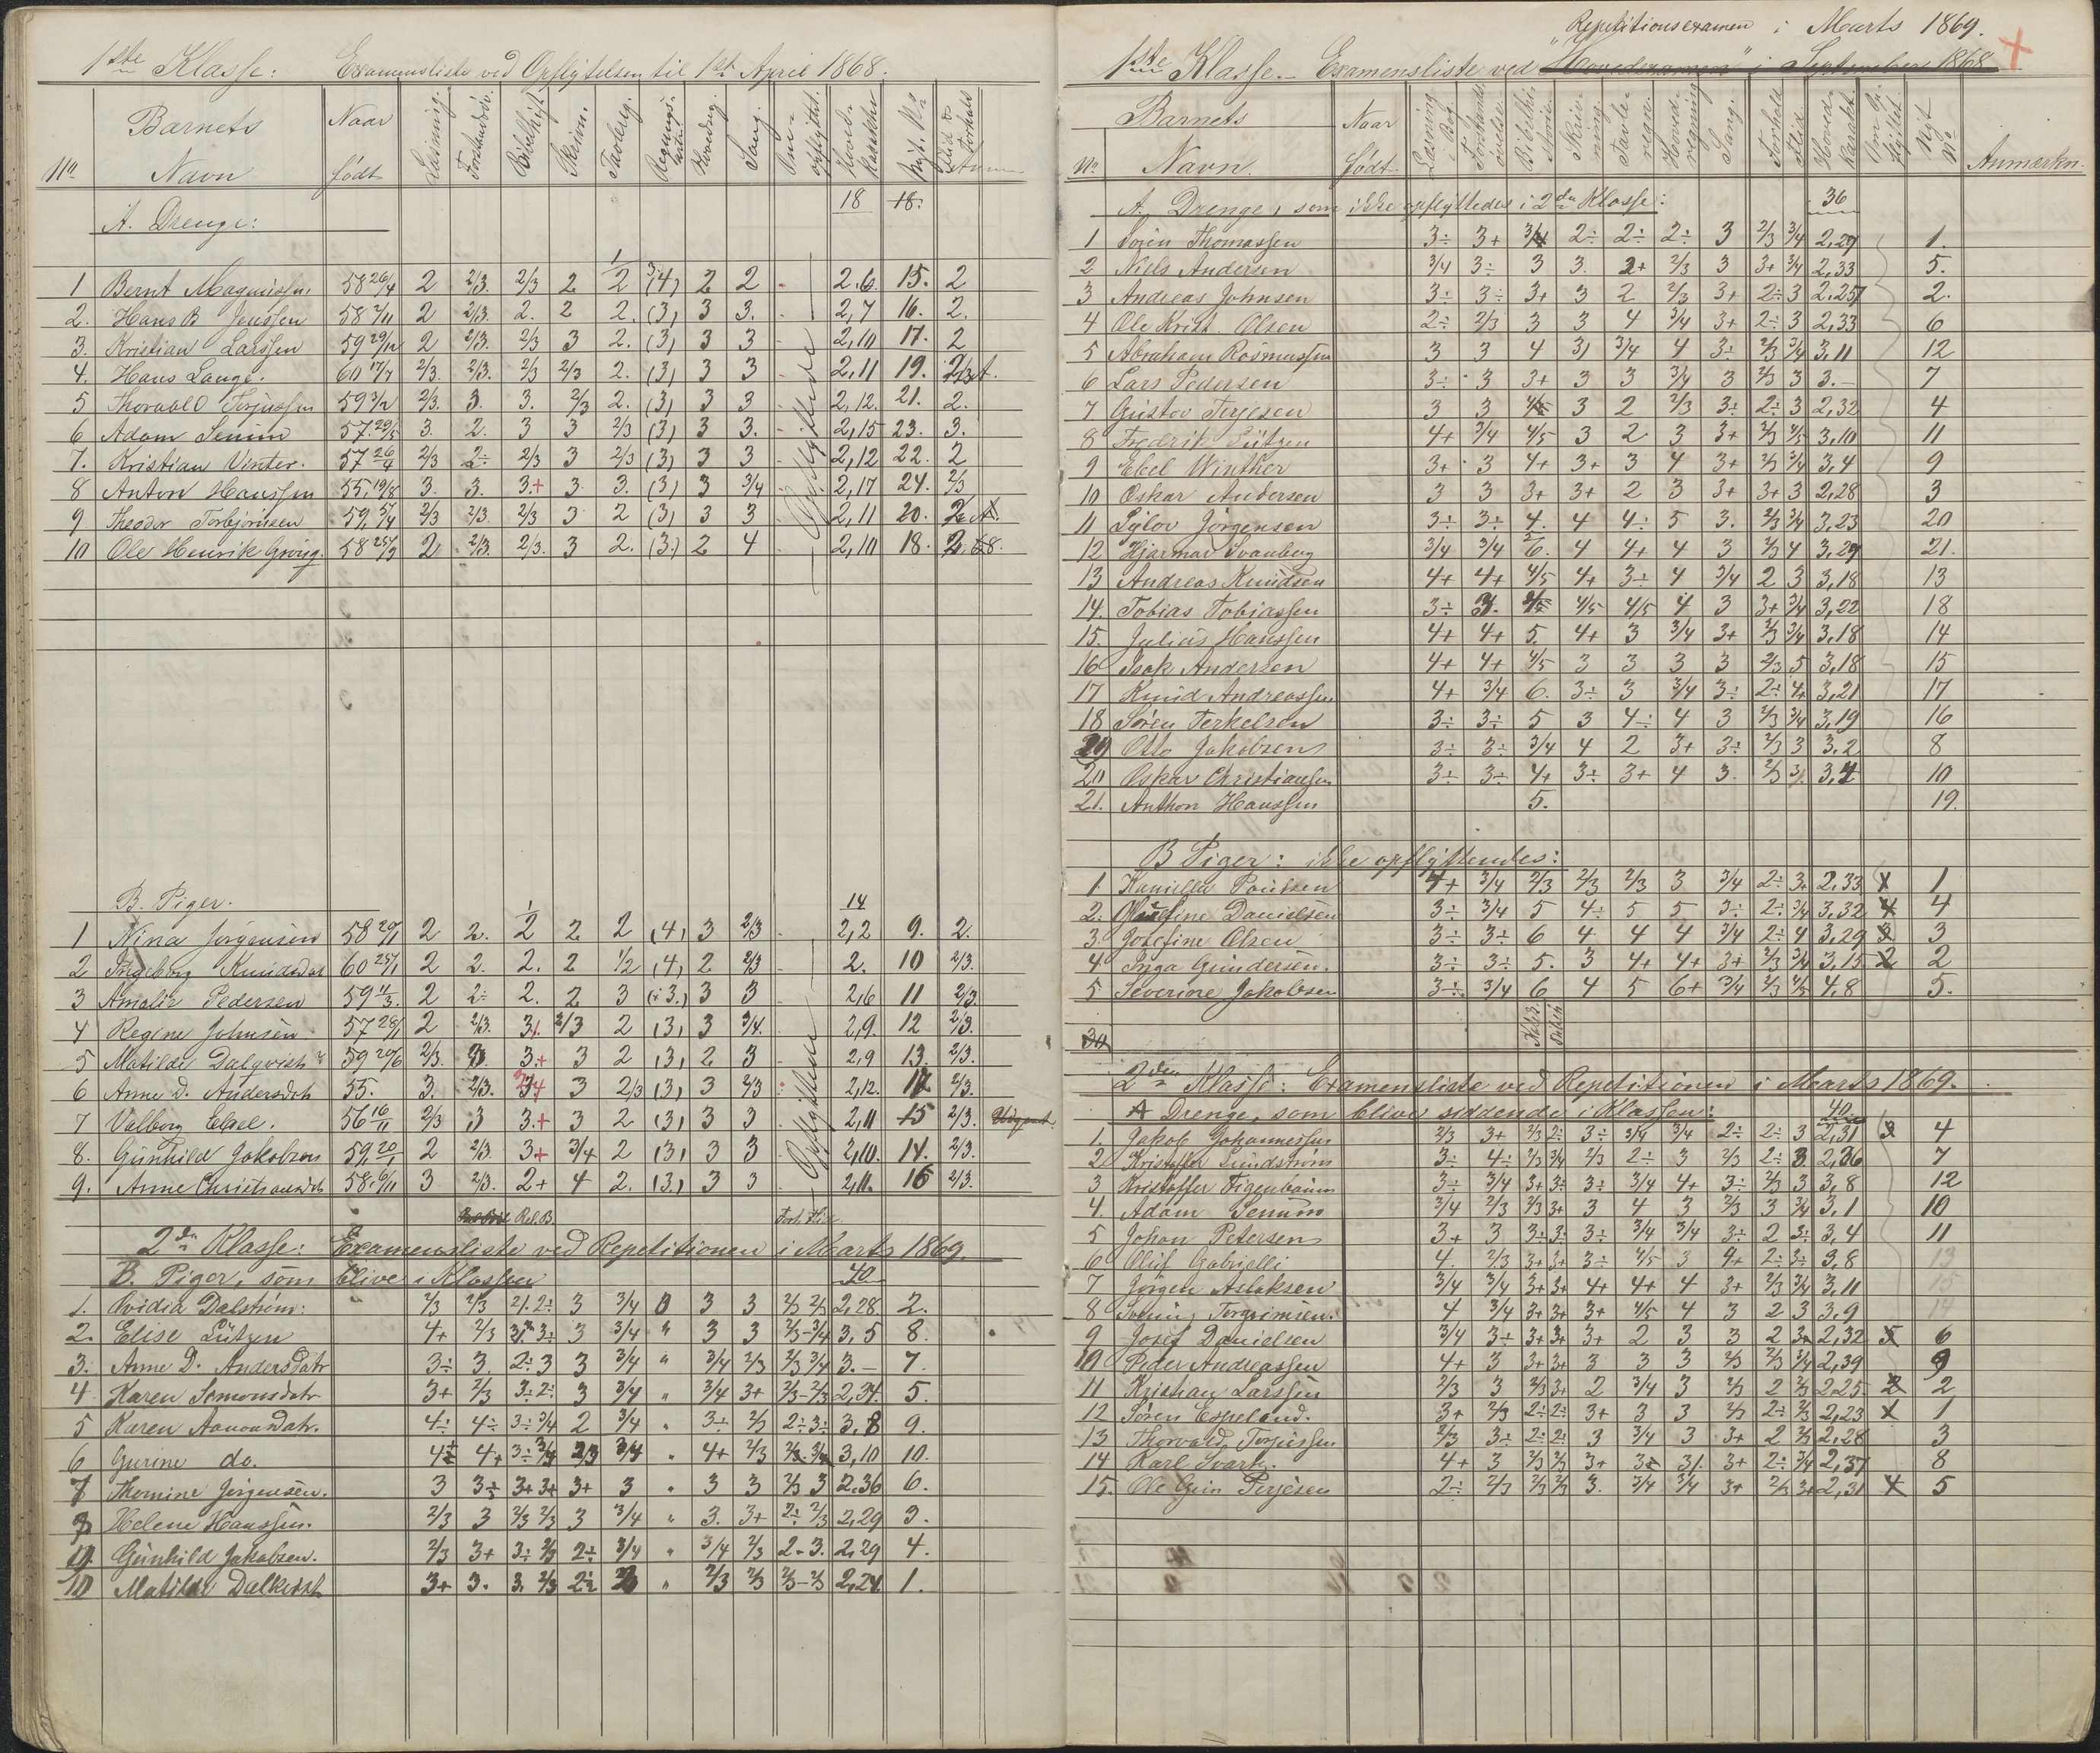 1ste Klasse: Examensliste ved Opflyttelsen til 1st April 1868.
No Barnets Navn Naar født Læsning. Bibelhist. Skrivn. Tavlereg. Hovedreg. Sang. Hoved-karakter Nyt No
A. Drenge: 18 18.
1 Bernt Magnussen 58 26/4 2 2/3. 2/3 2 2 (4) 2 2 2,6 15. 2
2. Hans B Jenssen 58 7/11 2 2/3. 2. 2 2. (3) 3 3. 2,7 16. 2.
3. Kristian Larssen 59 29/12 2 2/3. 2/3 3 2. (3) 3 3 2,10 17. 2
4. Hans Lange. 60 17/7 2/3. 2/3. 2/3 2/3 2. (3) 3 3 2,11 19.
5 Thorvald Terjussen 59 3/2 2/3. 3. 3. 2/3 2. (3) 3 3 2,12. 21. 2.
6 Adam Senum 57. 29/5 3. 2. 3 3 2/3 (3) 3 3. 2,15 23. 3.
7. Kristian Vinter. 57 26/4 2/3 2÷ 2/3 3 2/3 (3) 3 3 2,12 22. 2
8 Anton Hanssen 55. 19/8 3. 3. 3.+ 3. 3. (3) 3 3/4 2,17 24. 2/3
9 Theodor Torbjörnsen 59, 5/4 2/3 2/3. 2/3 3 2 (3) 3 3 2,11 20.
10 Ole Henrik 58 2 2/3. 2/3. 3 2. (3.) 2 4 2,10 18.
Opflyttede
B. Piger. 14
1 Nina Jørgensen 58 20/1 2 2. 2 2 2 (4) 3 2/3 2,2 9. 2.
2 Ingeborg Knudsdat 60 25/1 2 2. 2. 2 1/2 (4) 2 2/3 2. 10 2/3.
3 Amalie Pedersen 59 4/3. 2 2÷ 2. 2 3 3 3 2,6 11 2/3
4 Regine Johnsen 57 28/1 2 2/3. 2/3 2 (3) 3 3/4. 2,9. 12 2/3.
5 Matilde Dalqvist 59 20/6 2/3. 3. 3.+ 3 2 (3) 2 3 2,9 13. 2/3.
6 Anne D. Andersdtr 55. 3. 2/3. 3 2/3 (3) 3 2/3 2,12. 2/3.
7 Valborg Ebsel. 56 16/11 2/3 3 3.+ 3 2 (3) 3 3 2,11 15 2/3.
8. Gunhild Jakobsen 59, 20/1 2 2/3 3+ 3/4 2 (3) 3 3 2,10. 14. 2/3.
9. Anne Christiansdt 58. 6/11 3 2/3. 2+ 4 2. (3.) 3 3 2,11. 16 2/3.
Opflyttede
Rel. B. Forh. Flid.
2den Klasse: Examensliste ved Repetitionen i Marts 1869.
B. Piger, som blive i Klassen 40
1. Ovidia Dalstrøm: 2/3 2/3 2÷ 3 3/4 0 3 3 2/3 2/3 2,28 2.
2. Elise Lützen 4+ 2/3 3÷ 3 3/4 " 3 3 2/3-3/4 3,5 8.
3. Anne D. Andersdatr 3÷ 3 2÷ 3 3 3/4 " 3/4 2/3 2/3 3/4 3.— 7.
4 Karen Simonsdatr 3+ 2/3 3÷ 2÷ 3 3/4 " 3/4 3+ 2/3-2/3 2,34. 5.
5 Karen Aanonsdatr. 4÷ 4÷ 3÷ 3/4 2 3/4 " 3÷ 2/3 2÷ 3÷ 3,8 9.
6 Gurine do. 4+ 3÷ 2/3 3/4 " 4+ 2/3 3,10 10.
7 Thomine Jørgensen. 3 3÷ 3+ 3+ 3+ 3 " 3 3 2/3 3 2.36 6.
8 Helene Hanssen. 2/3 3 2/3 2/3 3 3/4 " 3. 3+ 2÷ 2/3 2,29 3.
9. Gunhild Jakobsen. 2/3 3+ 3÷ 2/3 2÷ 3/4 " 3/4 2/3 2-3. 2,29 4.
10 Matilde Dalkvist 3+ 3. 3. 2/3 2÷ " 2/3 2/3 2/3-2/3 2,24 1.
Repetitionsexamen i Marts 1869.
1ste Klasse. Examensliste ved "Hovedexamen" i September 1868
No. Barnets Navn. Naar født Læsning i Bog. Forstandsøvelse. Bibelhistorie. Skrivning. Tavleregn. Hovedregning Sang. Forhold Flid. Hovedkarakt. Nyt No Anmærkn.
A. Drenge, som ikke opflyttedes i 2den Klasse: 36
1 Søren Thomassen 3÷ 3+ 2÷ 2÷ 2÷ 3 2/3 3/4 2,29 1.
2 Niels Andersen 3/4 3÷ 3 3. 2+ 2/3 3 3+ 3/4 2,33 5.
3 Andreas Johnsen 3÷ 3÷ 3+ 3 2 2/3 3+ 2÷ 3 2.25 2.
4 Ole Krist. Olsen 2÷ 2/3 3 3 4 3/4 3+ 2÷ 3 2,33 6
5 Abraham Rosmussen 3 3 4 3 3/4 4 3÷ 2/3 3/4 3,11 12
6 Lars Pedersen 3÷ 3 3+ 3 3 3/4 3 2/3 3 3.— 7
7 Gustov Terjesen 3 3 3 2 2/3 3÷ 2÷ 3 2,32 4
8 Fredrik Lützen 4+ 3/4 4/5 3 2 3 3+ 2/3 4/5 3,10 11
9 Ebel Winther 3+ 3 4+ 3+ 3 4 3+ 2/3 3/4 3,4 9
10 Oskar Andersen 3 3 3+ 3+ 2 3 3+ 3+ 3 2,28 3
11 Jörgensen 3÷ 3÷ 4. 4 4÷ 5 3. 2/3 3/4 3,23 20
12 Hjarmar Svanberg 3/4 3/4 6. 4 4+ 4 3 2/3 4 3,29 21.
13 Andreas Knudsen 4+ 4+ 4/5 4+ 3÷ 4 3/4 2 3 3,18 13
14. Tobias Tobiassen 3÷ 3. 4/5 4/5 4/5 4 3 3+ 3/4 3,22 18
15. Julius Hanssen 4+ 4+ 5. 4+ 3 3/4 3+ 2/3 3/4 3,18 14
16 Isak Andersen 4+ 4+ 4/5 3 3 3 3 2/3 5 3,18 15
17 Knud Andreassen 4+ 3/4 6. 3÷ 3 3/4 3÷ 2÷ 4+ 3,21 17
18 Søren Terkelsen 3÷ 3÷ 5 3 4÷ 4 3 2/3 3/4 3,19 16
19 Otto Jakobsen 3÷ 3÷ 3/4 4 2 3+ 3÷ 2/3 3 3,2 8
20 Oskar Christiansen 3÷ 3÷ 4+ 3÷ 3+ 4 3. 2/3 3/. 3,4 10
21. Anthon Hanssen 5. 19.
B Piger: ikke opflyttendes:
1. Kamilla Poulsen 4+ 3/4 2/3 2/3 2/3 3 3/4 2÷ 3+ 2,33 1
2. Danielsen 3÷ 3/4 5 4÷ 5 5 3÷ 2÷ 3/4 3,32 4 4
3. Josefine Olsen 3÷ 3÷ 6 4 4 4 3/4 2÷ 4 3,29 3 3
4 Inga Gundersen. 3÷ 3÷ 5. 3 4+ 4+ 3+ 2/3 3/4 3,15. 2 2
5 Severine Jakobsen 3÷ 3/4 6 4 5 6+ 3/4 2/3 4/5 4,8 5.
2den Klasse: Examensliste ved Repetitionen i Marts 1869.
A Drenge, som blive siddende i Klassen: 40
1. Jakob Johannessen 2/3 3+ 2/3 2÷ 3÷ 3/4 3/4 2÷ 2÷ 3 2,31 3 4
2. Kristoffer Lundstrøm 3÷ 4÷ 2/3 3/4 2/3 2÷ 3 2/3 2÷ 3 2,36 7
3 Kristoffer Figenbaum 3÷ 3/4 3+ 3÷ 3÷ 3/4 4+ 3÷ 2/3 3 3,8 12
4. Adam Senum 3/4 2/3 2/3 3+ 3 4 3 2/3 3 3/4 3,1 10
5 Johan Petersen 3+ 3 3÷ 3÷ 3÷ 3/4 3/4 3÷ 2 3÷ 3,4 11
6 Oluf Gabrielli 4. 2/3 3+ 3+ 3÷ 4/5 3 4+ 2÷ 3÷ 3,8 13
7 Jørgen Aslaksen 3/4 3/4 3+ 3+ 4+ 4+ 4 3+ 2/3 3/4 3,11 15
8 Torgrimsen. 4 3/4 3+ 3+ 3+ 4/5 4 3 2 3 3,9 14
9 Josef Danielsen 3/4 3÷ 3+ 3+ 3+ 2 3 3 2 3+ 2,32 5 6
10 Peder Andreassen 4+ 3 3+ 3+ 3 3 3 2/3 2/3 3/4 2,39 9
11 Kristian Larssen 2/3 3 2/3 3+ 2 3/4 3 2/3 2 2/3 2,25. 2 2
12 Søren Espeland. 3+ 2/3 2÷ 2÷ 3+ 3 3 2/3 2÷ 2/3 2,23 1
13 Thorvald Terjussen 2/3 3÷ 2÷ 2÷ 3 3/4 3 3+ 2 2/3 2,28 3
14 Karl Svart. 4+ 3 2/3 2/3 3+ 3÷ 3/. 3+ 2÷ 3/4 2,37 8
15. Ole Terjesen 2÷ 2/3 2/3 2/3 3. 3/4 3/4 3+ 2/3 3+ 2,31 4 5